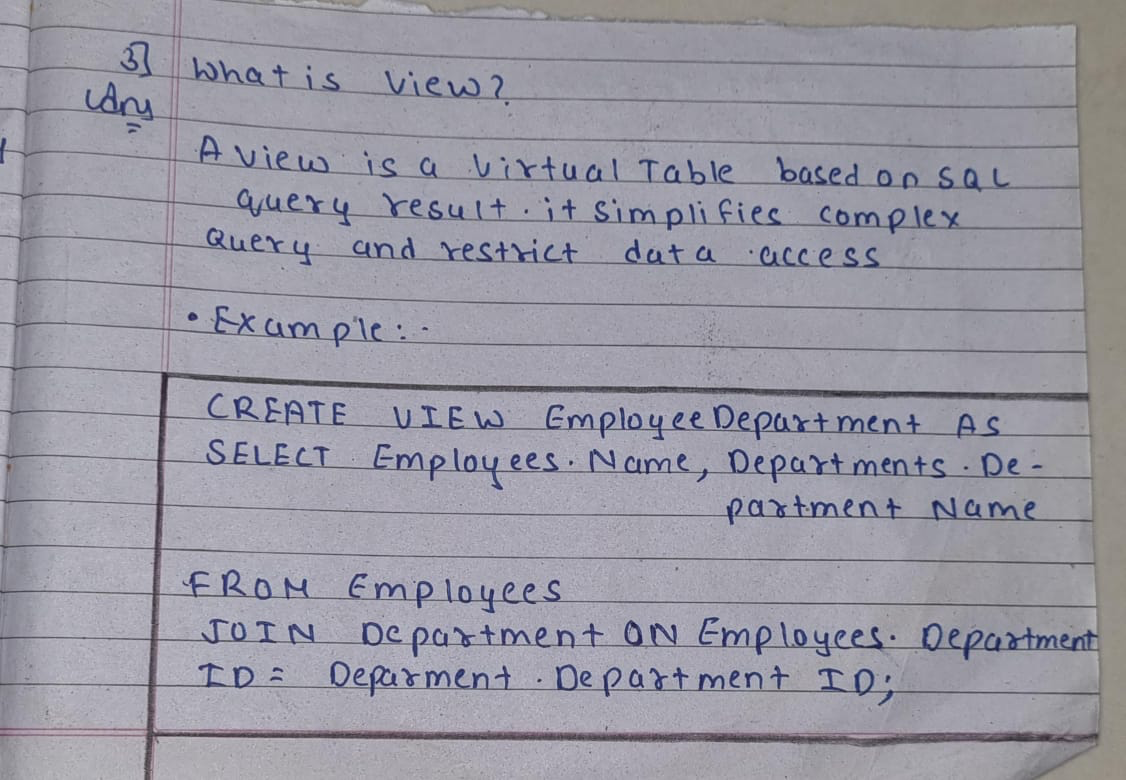 3] What is View?
Ans
A view is a Virtual Table based on SQL
query result. it simplifies complex
Query and restrict data access
• Example:-
CREATE VIEW EmployeeDepartment AS
SELECT Employees.Name, Departments.De-
partment Name
FROM Employees
JOIN Department ON Employees. Department
ID = Deparment. Department ID;